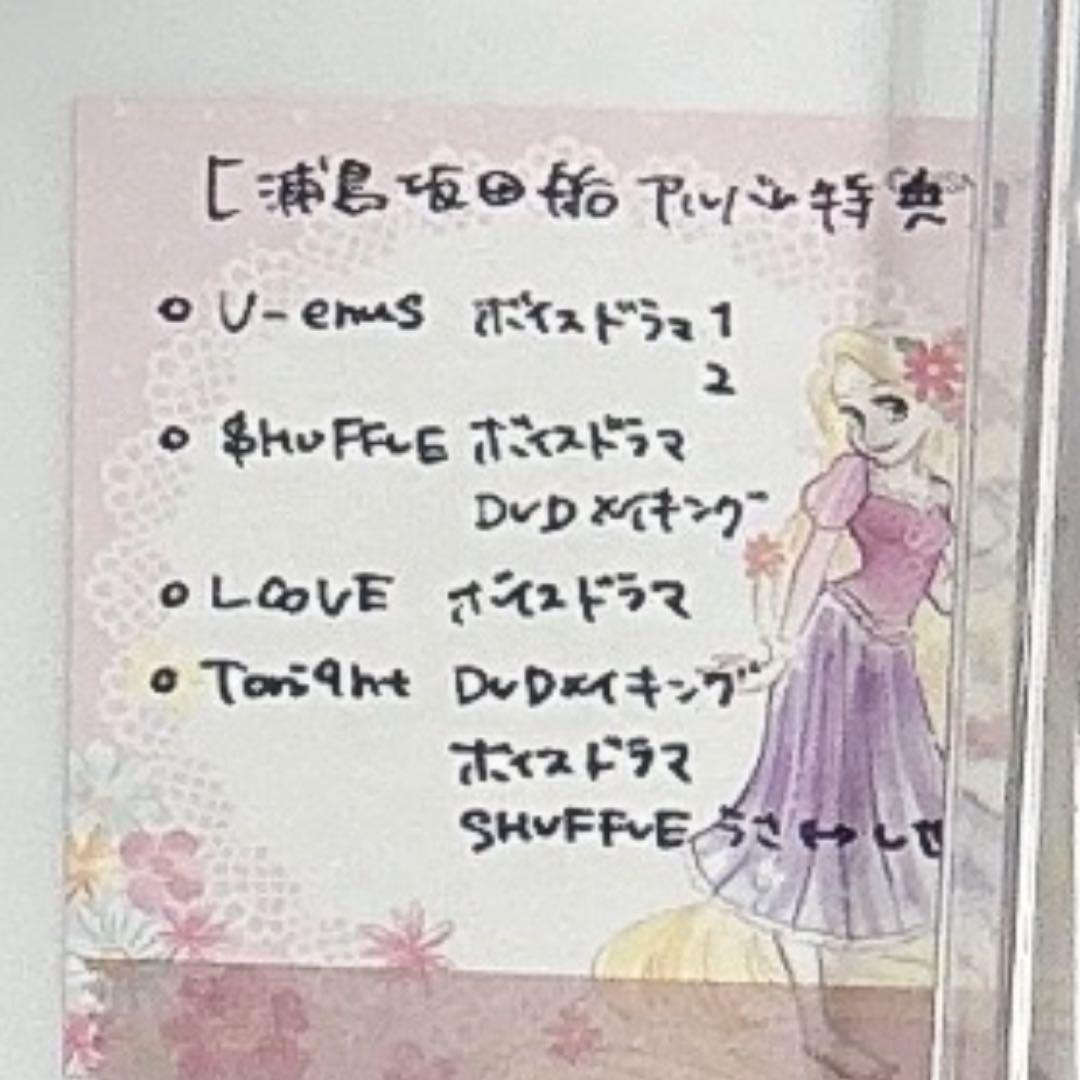 [浦島坂田船 アルバム特典
○ U-enus ボイスドラマ1
2
○ $HUFFLE ボイスドラマ
DVDメイキング
○ L∞VE ボイスドラマ
○ Tonight DVDメイキング
ボイスドラマ
SHUFFLE うさ↔しせ